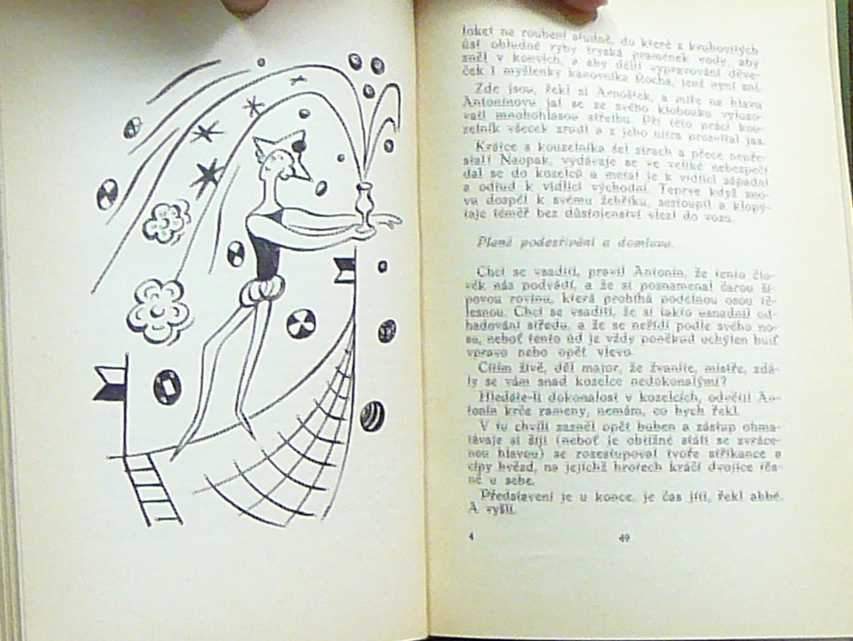 loket na roubení studně, do které z kruhovitých
úst obludné ryby tryská pramének vody, aby
zněl v konvích, a aby dělil vypravování děve-
ček i myšlenky kanovníka Rocha, jenž nyní sní.
Zde jsou, řekl si Arnoštek, a míře na hlavu
Antonínovu jal se ze svého klobouku vyluzo-
vati mnohohlasou střelbu. Při této práci kou-
zelník všecek zrudl a z jeho nitra prosvítal jas.
Krátce a kouzelníka šel strach a přece nepře-
stal! Naopak, vydávaje se ve veliké nebezpečí
dal se do kozelců a metal je k vidlici západní
a odtud k vidlici východní. Teprve když zno-
vu dospěl k svému žebříku, sestoupil a klopý-
taje téměř bez důstojenství vlezl do vozu.
Plané podezřívání a domluva.
Chci se vsaditi, pravil Antonín, že tento člo-
věk nás podvádí, a že si poznamenal čarou ší-
povou rovinu, která probíhá podélnou osou tě-
lesnou. Chci se vsaditi, že si takto usnadnil od-
hadování středu, a že se neřídí podle svého no-
su, neboť tento úd je vždy poněkud uchýlen buď
vpravo nebo opět vlevo.
Cítím živě, děl major, že žvaníte, mistře, zdá-
ly se vám snad kozelce nedokonalými?
Hledáte-li dokonalost v kozelcích, odvětil An-
tonín krče rameny, nemám, co bych řekl.
V tu chvíli zazněl opět buben a zástup ohma-
távaje si šíji (neboť je obtížné státi se zvráce-
nou hlavou) se rozestupoval tvoře stříkance a
cípy hvězd, na jejichž hrotech kráčí dvojice těs-
ně u sebe.
Představení je u konce, je čas jíti, řekl abbé.
A vyšli.
4 49